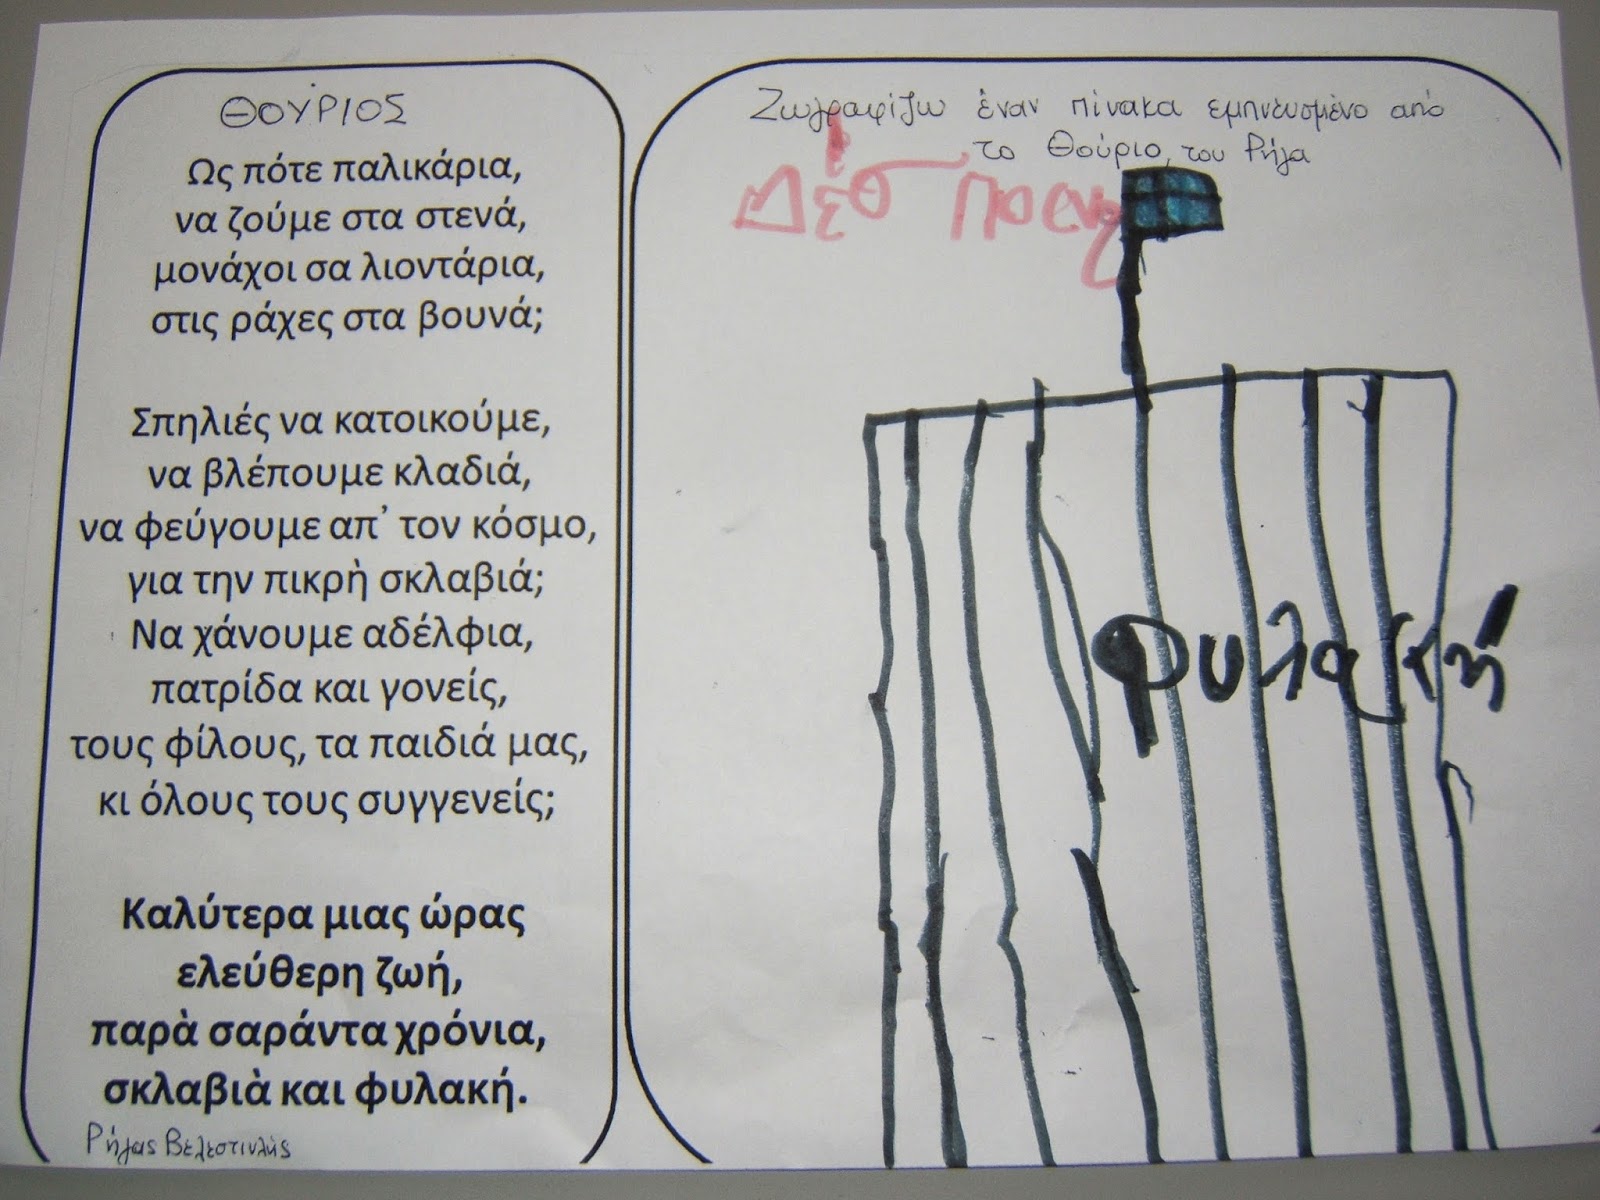 ΘΟΥΡΙΟΣ
Ως πότε παλικάρια,
να ζούμε στα στενά,
μονάχοι σα λιοντάρια,
στις ράχες στα βουνά;
Σπηλιές να κατοικούμε,
να βλέπουμε κλαδιά,
να φεύγουμε απ' τον κόσμο,
για την πικρὴ σκλαβιά;
Να χάνουμε αδέλφια,
πατρίδα και γονείς,
τους φίλους, τα παιδιά μας,
κι όλους τους συγγενείς;
Καλύτερα μιας ώρας
ελεύθερη ζωή,
παρὰ σαράντα χρόνια,
σκλαβιὰ και φυλακή.
Ρήγας Βελεστινλής
Ζωγραφίζω έναν πίνακα εμπνευσμένο από
το Θούριο, του Ρήγα
Φυλακή